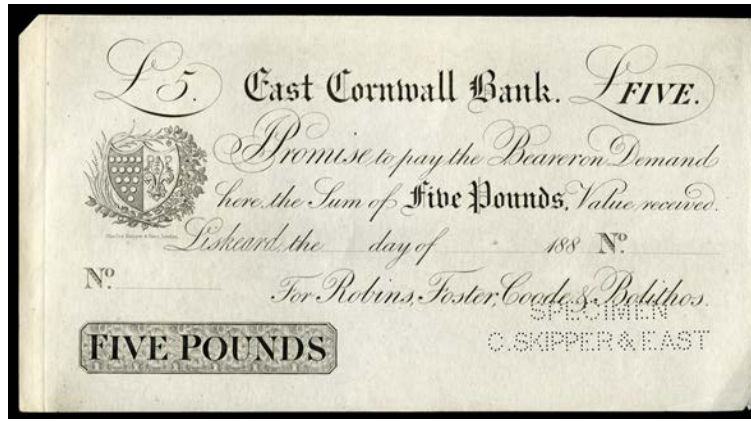 £5. East Cornwall Bank. £FIVE.
I Promise to pay the Bearer on Demand
here, the Sum of Five Pounds, Value received.
Liskeard, the day of 188 Nº
Nº
For Robins, Foster, Coode & Bolithos.
SPECIMEN
C. SKIPPER & EAST
FIVE POUNDS